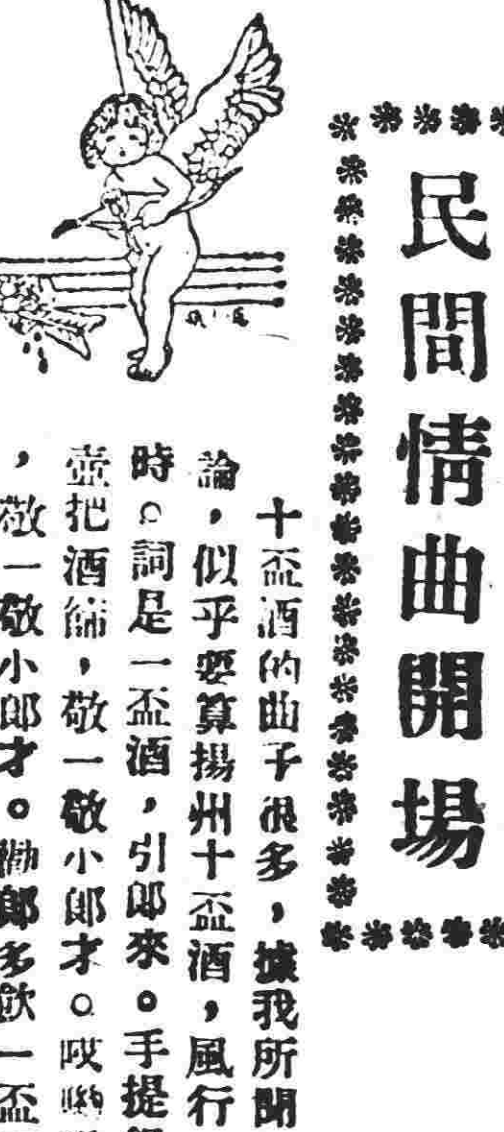 民間情曲開場
十盃酒的曲子很多，據我所聞
論，似乎要算揚州十盃酒，風行
時。詞是一盃酒，引郎來。手提
壺把酒篩，敬一敬小郎才。哎喲
，敬一敬小郎才。勸郎多飲一盃